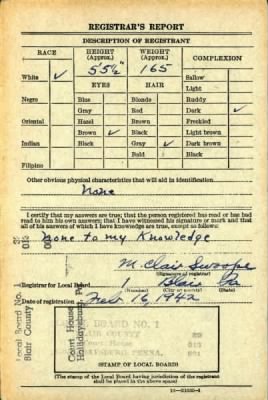 REGISTRAR'S REPORT
DESCRIPTION OF REGISTRANT
RACE HEIGHT (Approx.) WEIGHT (Approx.) COMPLEXION
White ✓ 5 5½" 165 Sallow
Light
EYES HAIR
Negro Blue Blonde Ruddy
Gray Red Dark ✓
Oriental Hazel Brown Freckled
Brown ✓ Black Light brown
Indian Black Gray ✓ Dark brown
Bald Black
Filipino
Other obvious physical characteristics that will aid in identification
None
I certify that my answers are true; that the person registered has read or has had
read to him his own answers; that I have witnessed his signature or mark and that
all of his answers of which I have knowledge are true, except as follows:
None to my Knowledge
M. Clair Swoope
(Signature of registrar)
Registrar for Local Board 1 Blair Pa
(Number) (City or county) (State)
Date of registration Feb. 16, 1942
Local Board No. 1
Blair County
013
Court House
Hollidaysburg, Penna.
BOARD NO. 1
BLAIR COUNTY
013
Court House
001
(STAMP OF LOCAL BOARD)
(The stamp of the Local Board having jurisdiction of the registrant
shall be placed in the above space)